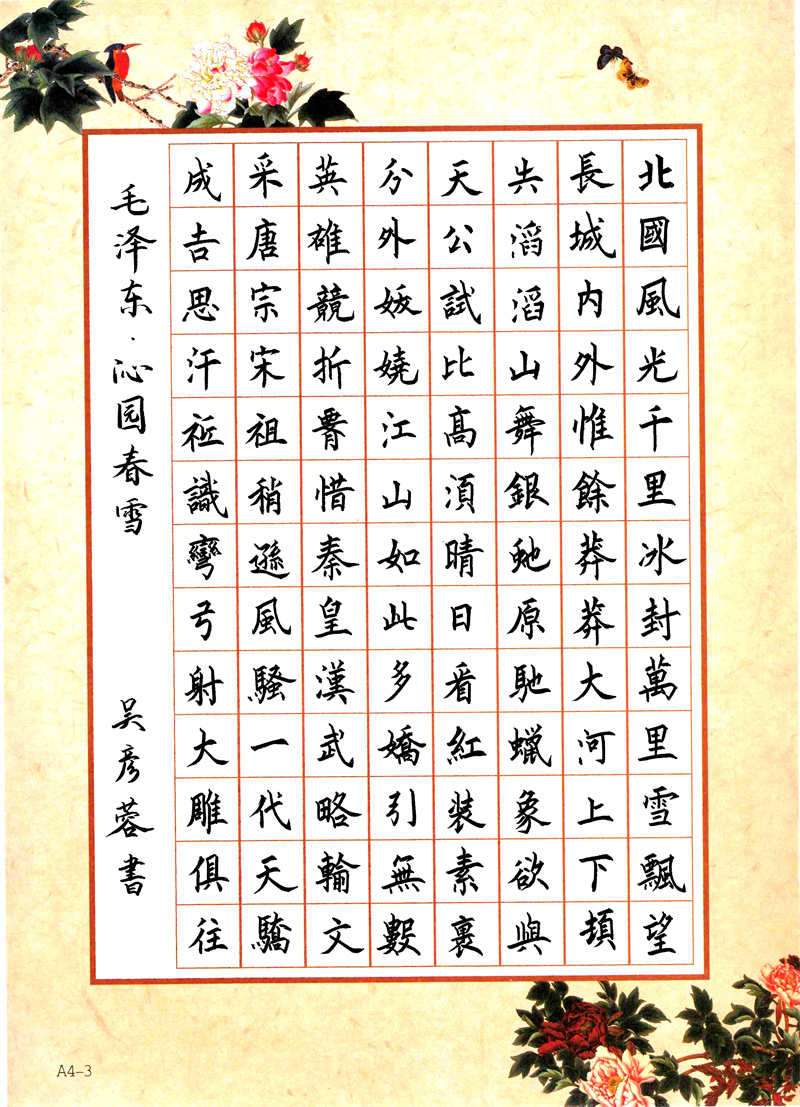 北國風光千里冰封萬里雪飄望
長城内外惟餘莽莽大河上下頓
失滔滔山舞銀虵原馳蠟象欲與
天公試比高須晴日看紅装素裹
分外妖嬈江山如此多嬌引無數
英雄競折腰惜秦皇漢武略輸文
采唐宗宋祖稍遜風騷一代天驕
成吉思汗祗識彎弓射大雕俱往
毛泽东·沁园春雪 吴彦蓉書
A4-3